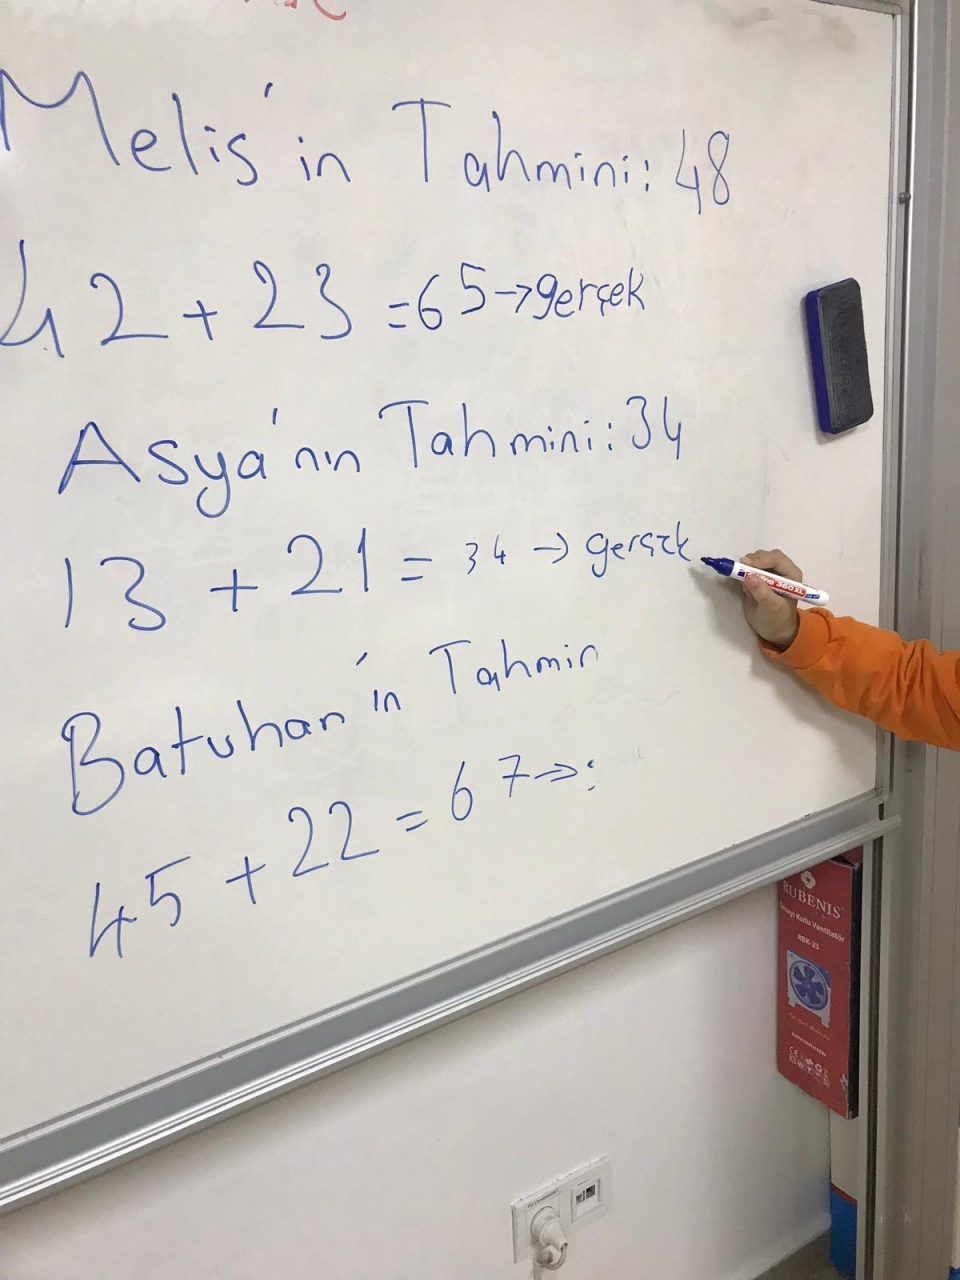 Melis'in Tahmini: 48
42 + 23 = 65 → gerçek
Asya'nın Tahmini: 34
13 + 21 = 34 → gerçek
Batuhan'in Tahmin
45 + 22 = 67 → :
RUBENIS
Sanayi Kutu Vantilatör
RBK-23